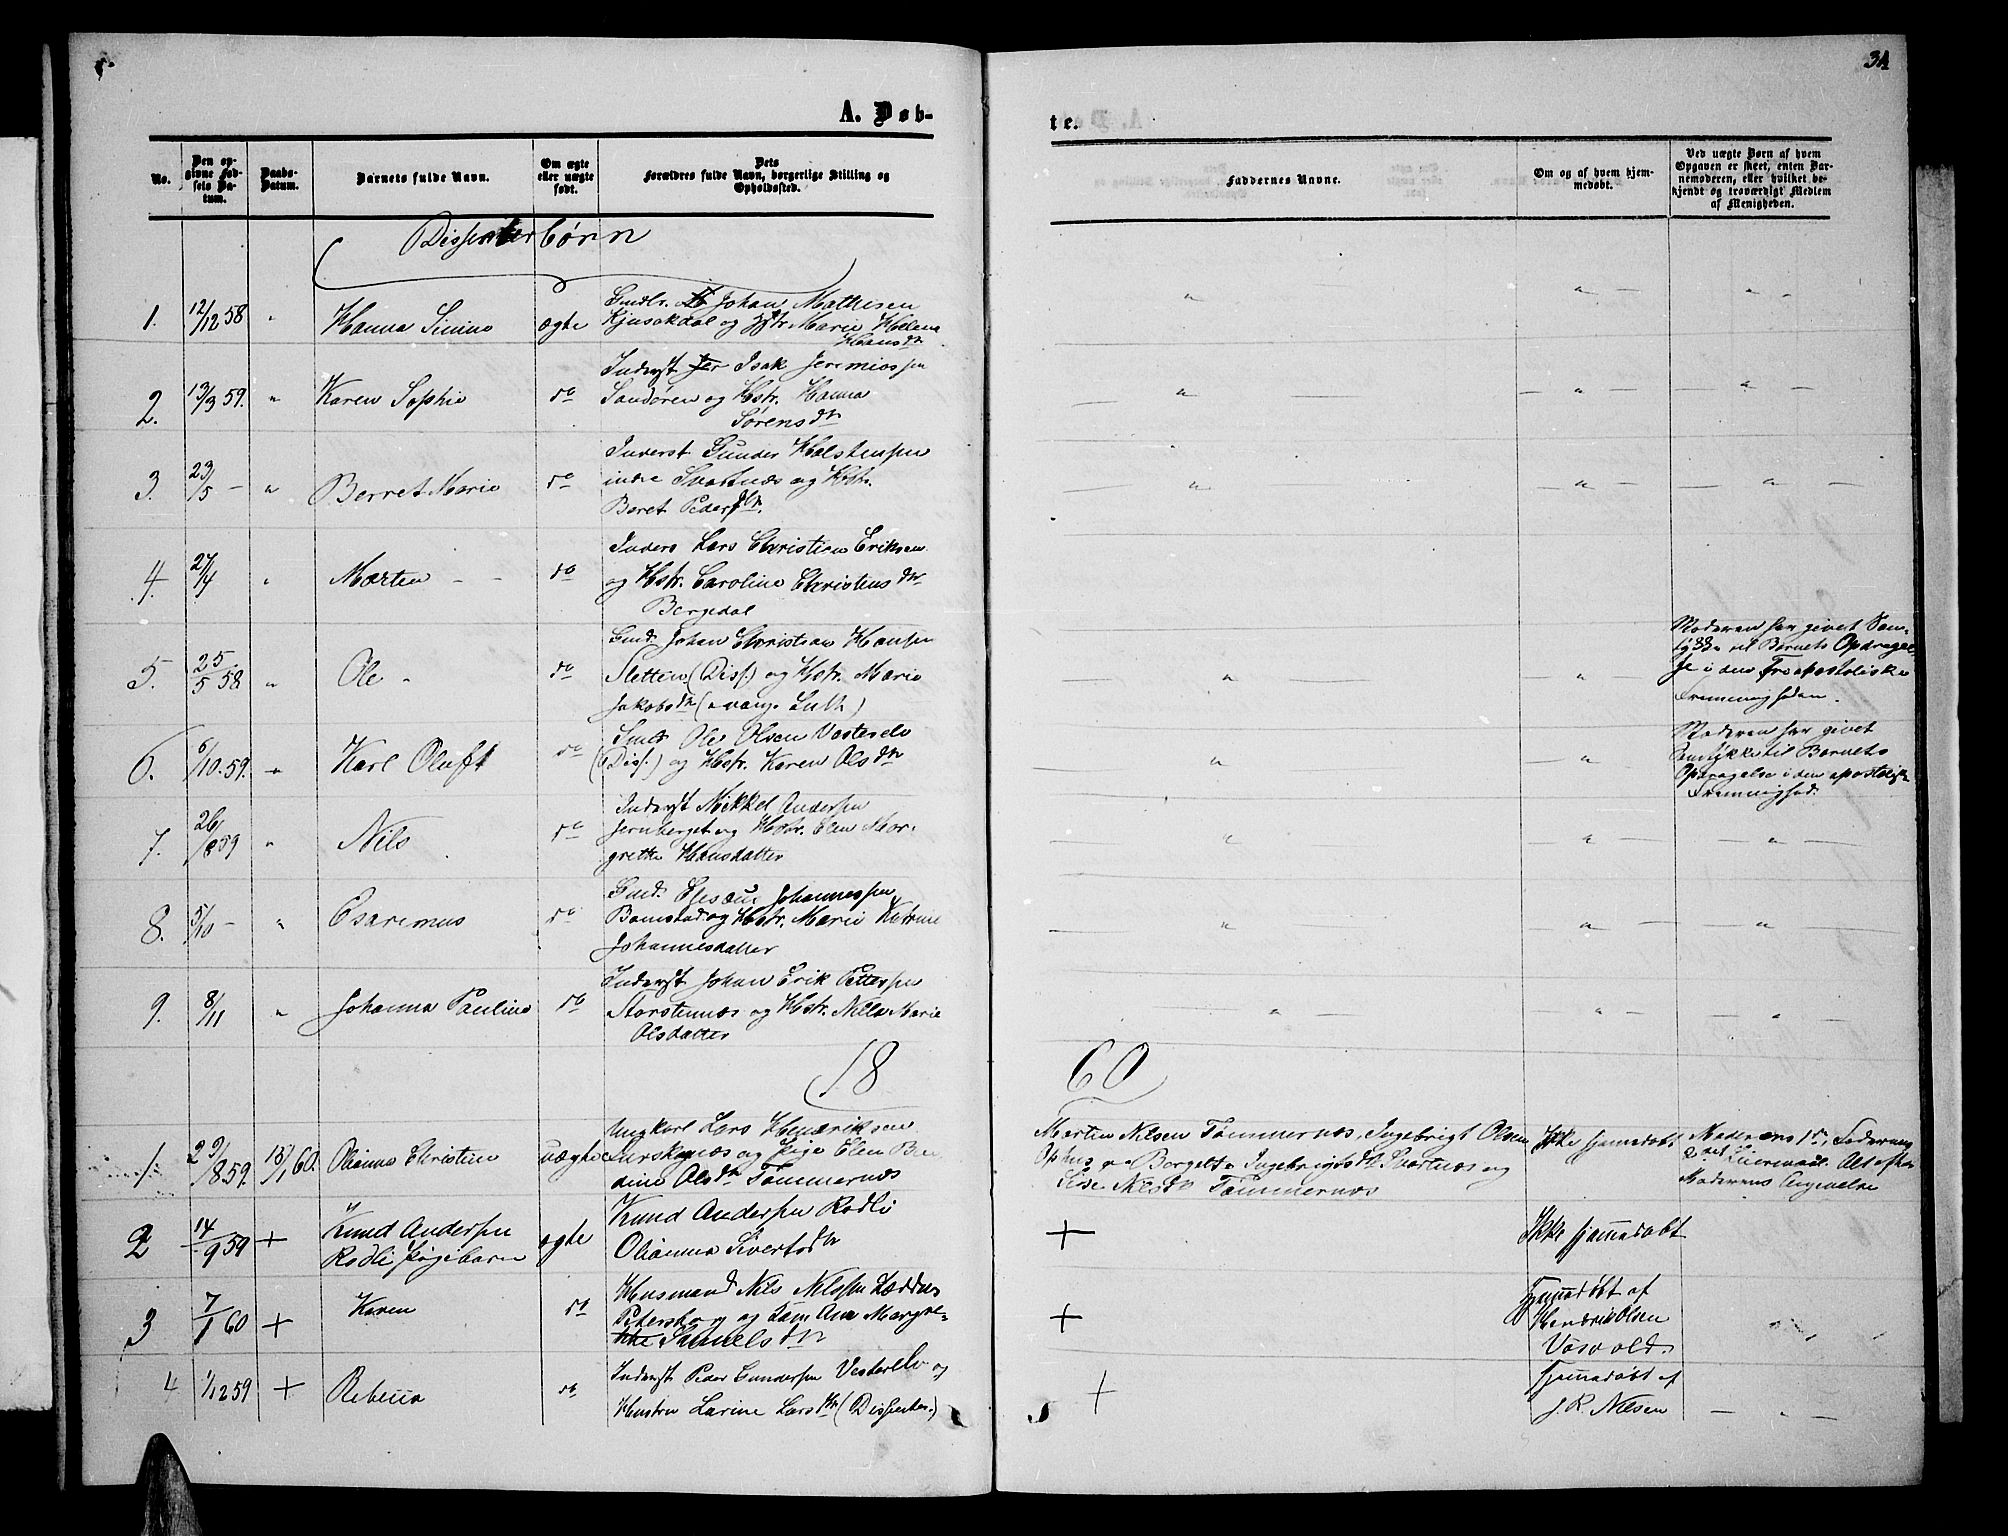 34
A. Døb-
te.
No.
Den op-
givne Fød-
sels Da-
tum.
Daabs-
Datum.
Barnets fulde Navn.
Om ægte
eller uægte
født.
Dets
Forældres fulde Navn, borgerlige Stilling og
Opholdssted.
Faddernes Navne.
Om og af hvem hjem-
medøbt.
Ved uægte Børn af hvem
Opgaven er skeet, enten Bar-
nemoderen, eller hvilket be-
kjendt og troværdigt Medlem
af Menigheden.
Dissenterbørn
1. 12/12 58 " Hanna Sinine ægte
Johan Mathisen
og Hstr. Marie Helena
Hansdtr
2. 13/3 59. " Karen Sophie do
Inderst Isak Jeremiassen
Sandøren og Hstr. Hanna
Sørensdtr
3. 23/5 — " Berret Marie do
Inderst Gunder Holstensen
indre Svartnæs og Hstr.
Beret Pedersdtr.
4. 27/4 " Morten do
Inders Lars Christian Eriksen
og Hstr. Caroline Christensdtr
Bergedal
5. 25/5 58 " Ole do
Gmd. Johan Christian Hansen
Sletten (Diss.) og Hstr. Marie
Jakobsdtr (evang. Luth)
Moderen har givet Sam-
tykke til Barnets Opdragel-
se i den Fri apostoliske
Fremenighed.
6. 6/10. 59. " Karl Oluf do
Ole Olsen Vesterelv
(Diss.) og Hstr. Karen Olsdtr
Moderen har givet
Samtykke til Barnets
Opdragelse i den apostolisk
Fremenighed.
7. 26/8 59 " Nils do
Inderst Mikkel Andersen
Jernberget og Hstr. Elen Mar-
grethe Hansdatter
8. 5/10 — " Esaremus do
Gmd. Esaeus Johannessen
Bomstad og Hstr. Marie Katrine
Johannesdatter
9. 8/11 " Johanna Pauline do
Inderst Johan Erik Pettersen
Storstennes og Hstr. Nille Marie
Olsdatter
18 60
1. 29/8 59. 15/1 60. Olianna Christine uægte
Ungkarl Lars Hendriksen
og Pige Elen Ber-
dine Olsdtr Tømmernes
Martin Nilsen Tømmernes, Ingebrigt Olsen
Ophus, Ingebrigtsdtr Svartnes og
Nilsdtr Tømmernes
Ikke hjemmedøbt
Moderens 1ste, Faderens
2det Leiermaal. Alt efter
Moderens Angivelse
2 14/9 59 + Knud Andersen
Rodli Pigebarn ægte
Knud Andersen Rodli
Olianna Sivertsdtr
+
Ikke hjemmedøbt
3 7/1 60 + Karen do
Husmand Nils Nilssen
og Kone Ane Margre-
the Samuelsdtr
+
Hjemmedøbt af
Hendrik Olsen
Vosvold.
4 1/12 59 + Rebecca do
Inderst Peder Gundersen Vesterelv og
Hustru Larine Larsdtr (Dissenter.)
+
Hjemmedøbt af
J. R. Nilsen